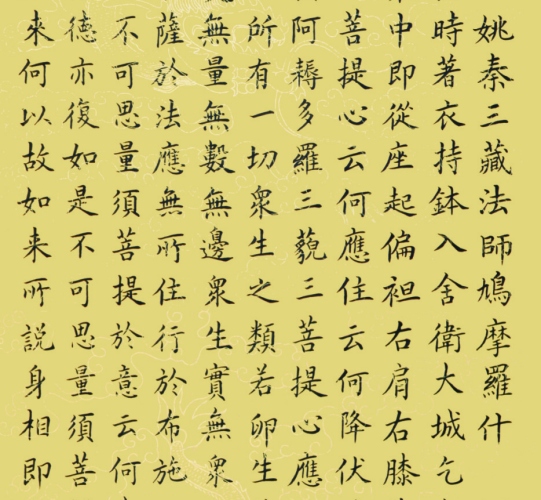 姚秦三藏法師鳩摩羅什
時著衣持鉢入舍衛大城乞
中即從座起偏袒右肩右膝
菩提心云何應住云何降伏
阿耨多羅三藐三菩提心應
所有一切衆生之類若卵生
無量無數無邊眾生實無眾
薩於法應無所住行於布施
不可思量須菩提於意云何
德亦復如是不可思量須菩
来何以故如来所說身相即